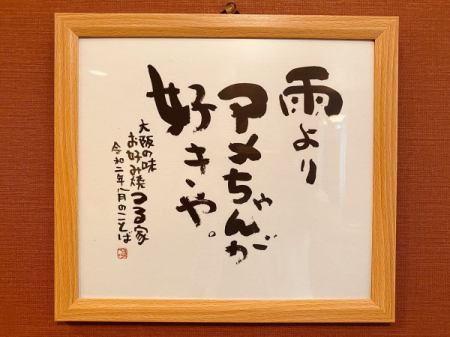 雨より
アメちゃんが
好きや。
大阪の味
お好み焼つる家
令和二年八月のことば